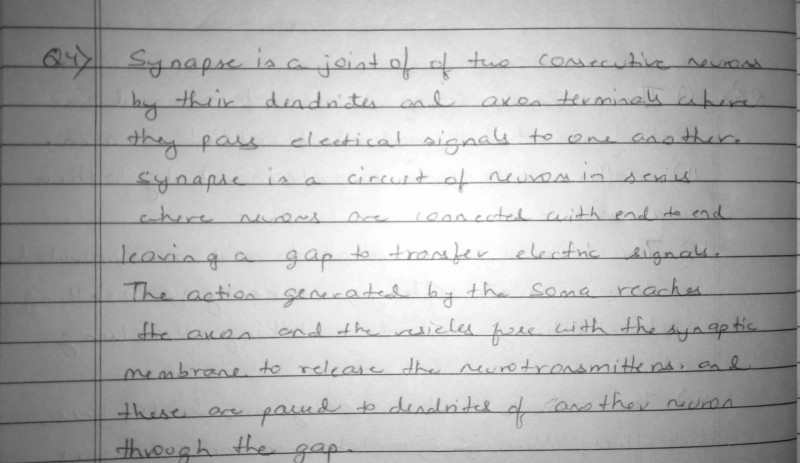 Q4) Synapse is a joint of of two consecutive neurons
by their dendrites and axon terminals where
they pass electical signals to one another.
Synapse is a circuit of neurons in series
where neurons are connected with end to end
leaving a gap to transfer electric signals.
The action generated by the Soma reaches
the axon and the vesicles fuse with the synaptic
membrane to release the neurotransmitters. and
these are passed to dendrites of another neuron
through the gap.